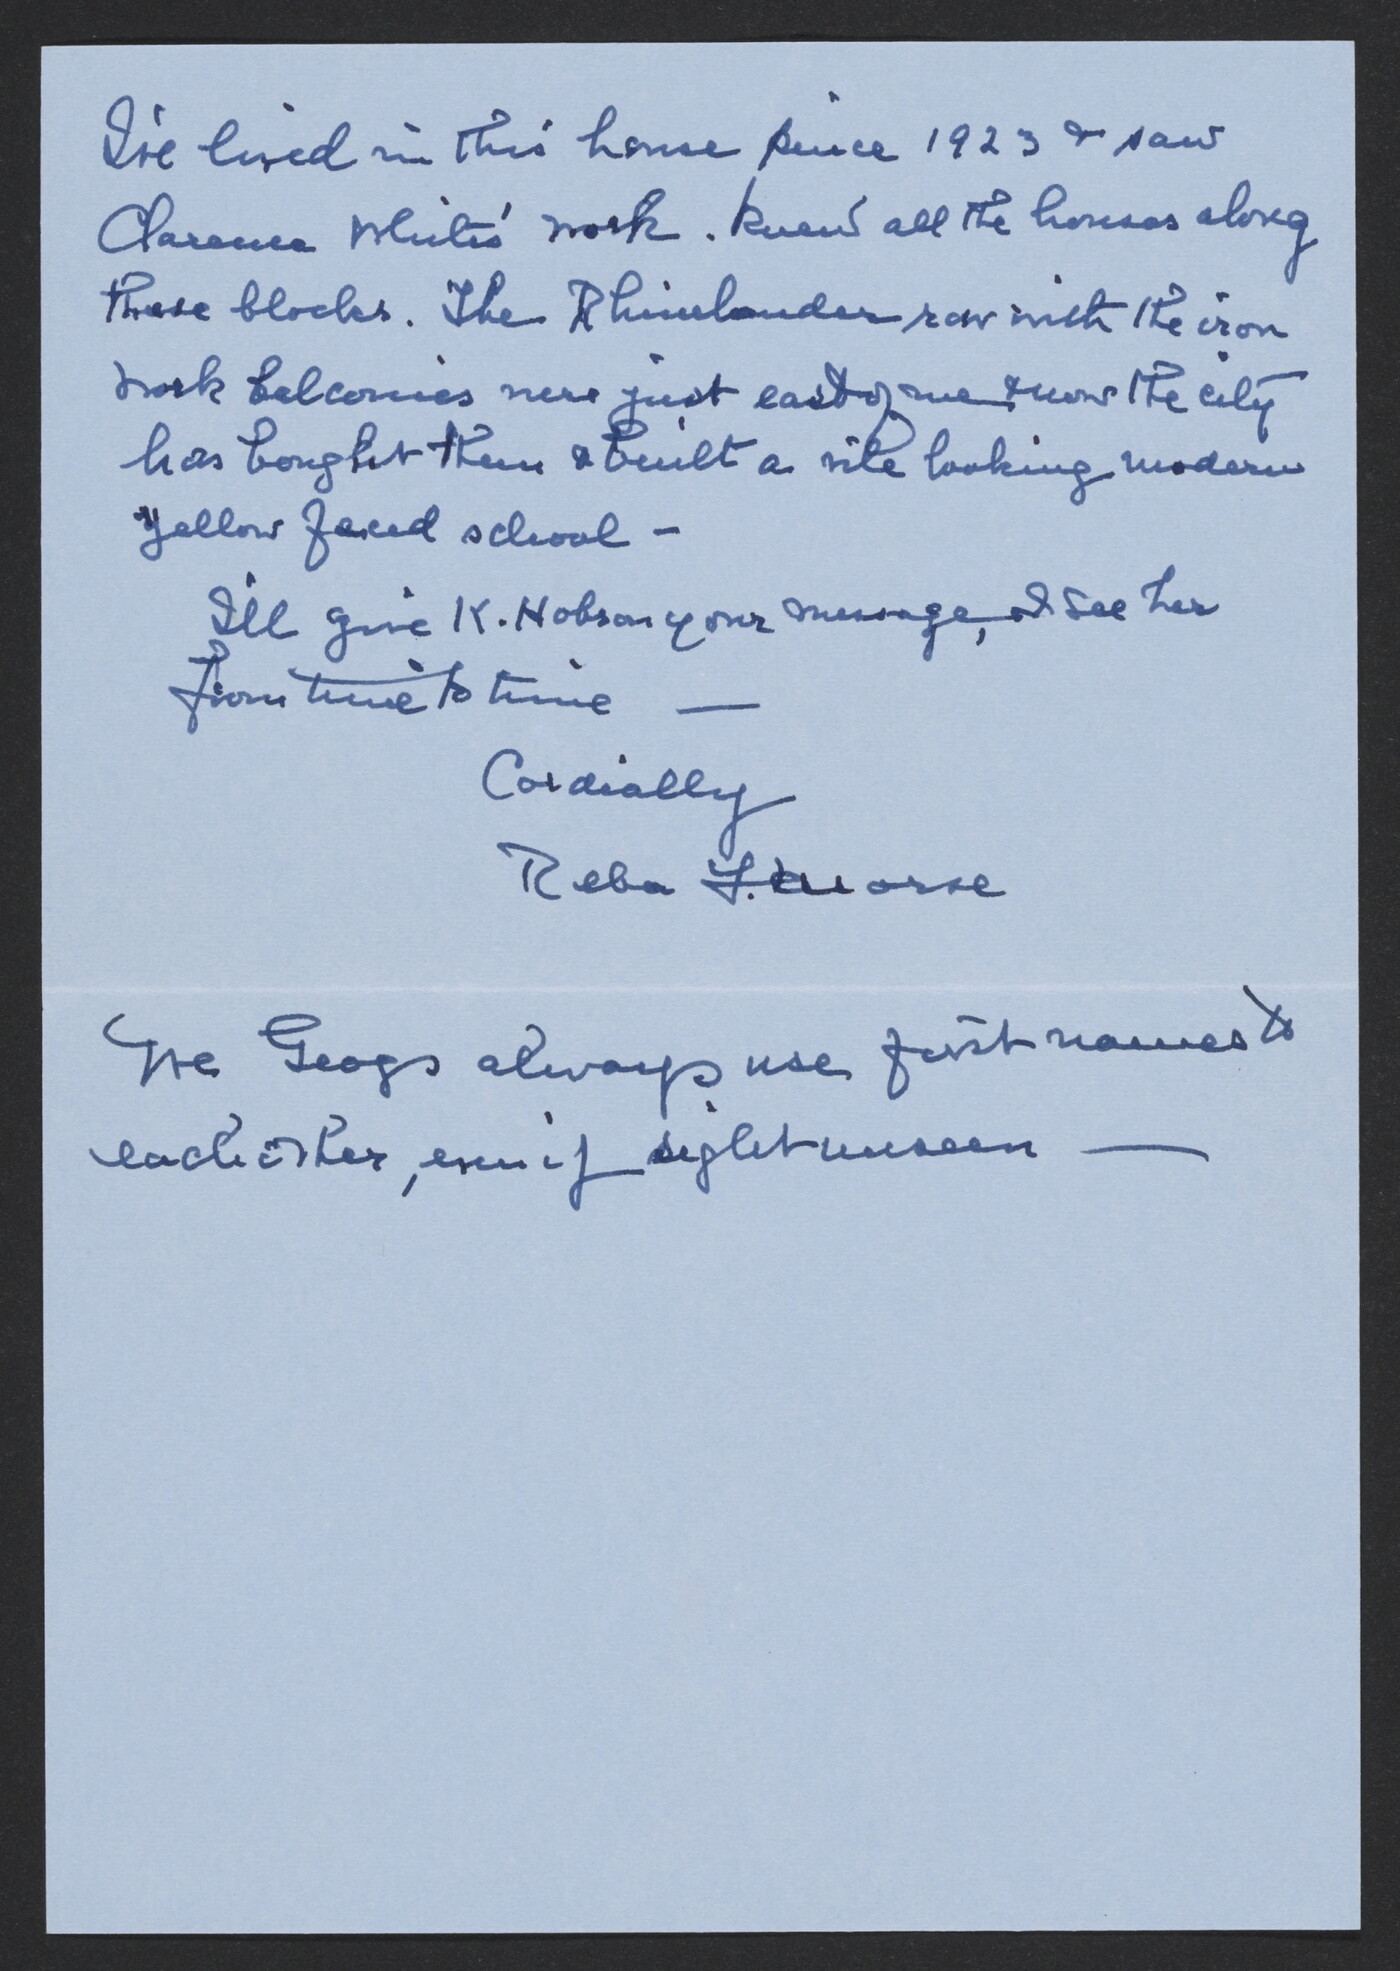 I've lived in this house since 1923 & saw
Clarence White's work. Knew all the houses along
these blocks. The Rhinelander row with the iron
work balconies were just east of me & now the city
has bought them & built a vile looking modern
yellow faced school –
I'll give K. Hobson your message, I see her
from time to time —
Cordially
Reba F. Morse
We Geogs always use first names to
each other, even if sight unseen —